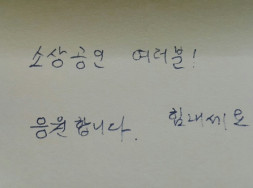 소상공인 여러분!
응원합니다. 힘내세요